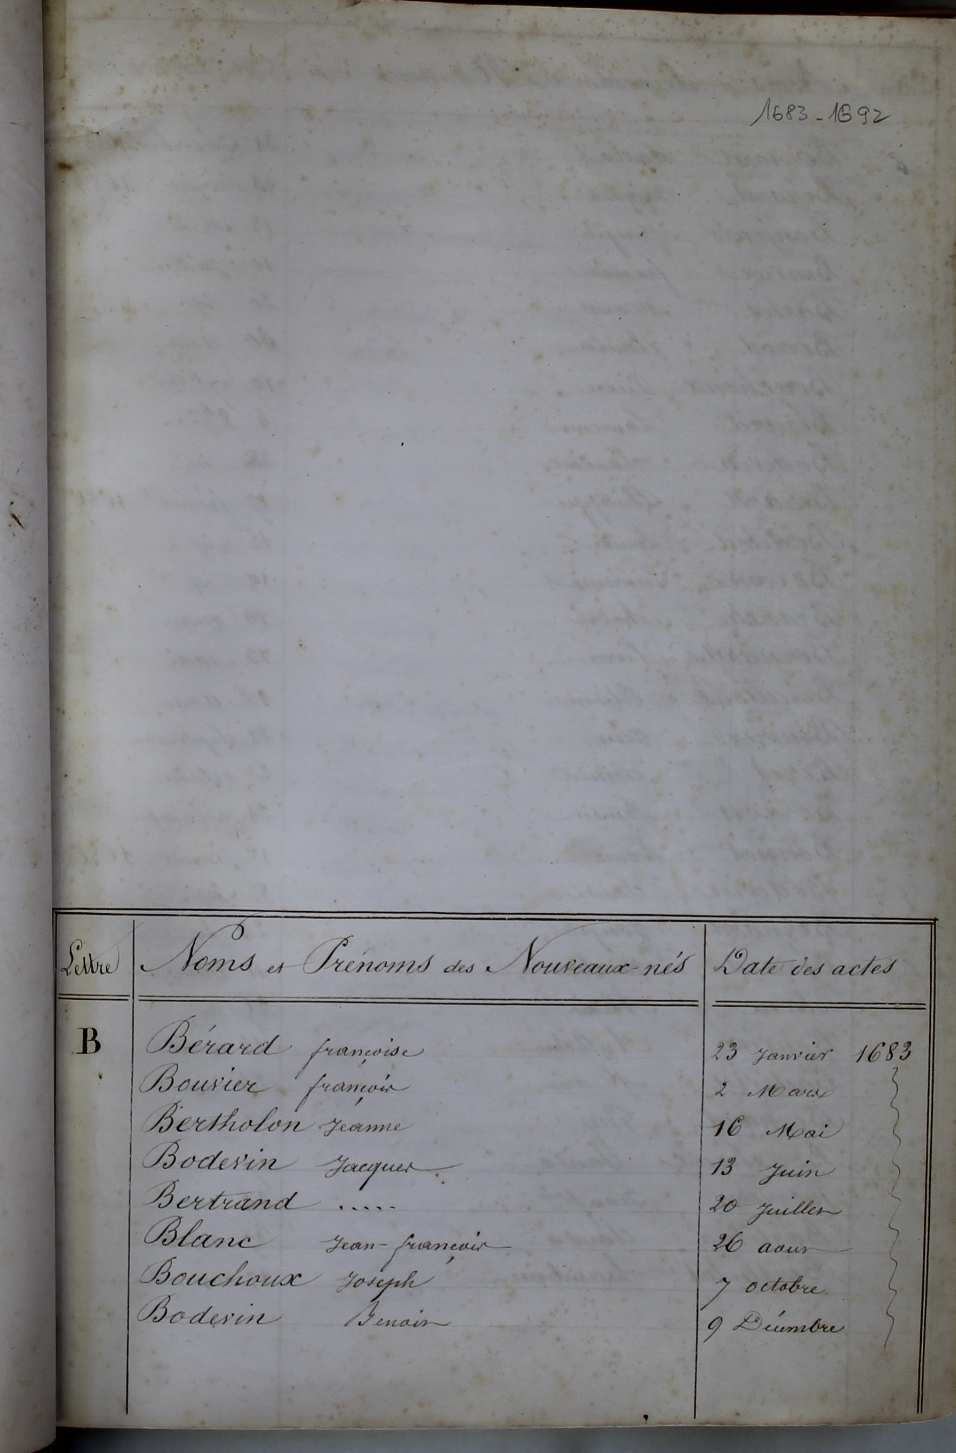 1683-1692
Lettre Noms et Prénoms des Nouveaux-nés Date des actes
B Bérard françoise 23 Janvier 1683
Bouvier françois 2 Mars
Bertholon Jeanne 16 Mai
Bodevin Jacques 13 Juin
Bertrand ..... 20 Juillet
Blanc Jean-françois 26 aout
Bouchoux Joseph 7 octobre
Bodevin Benoit 9 Décembre